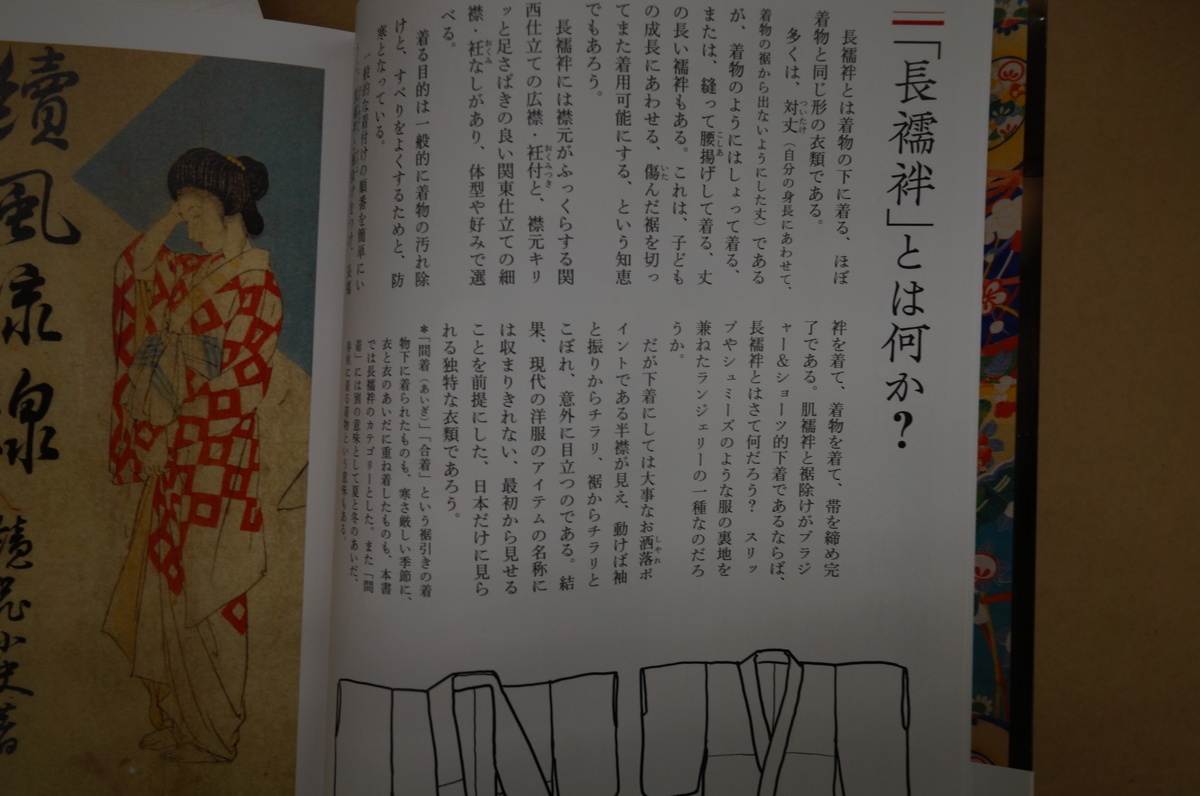 「長襦袢」とは何か?
長襦袢とは着物の下に着る、ほぼ
着物と同じ形の衣類である。
多くは、対丈（自分の身長にあわせて、
着物の裾から出ないようにした丈）である
が、着物のようにはしょって着る、
または、縫って腰揚げして着る、丈
の長い襦袢もある。これは、子ども
の成長にあわせる、傷んだ裾を切っ
てまた着用可能にする、という知恵
でもあろう。
長襦袢には襟元がふっくらする関
西仕立ての広襟・衽付と、襟元キリ
ッと足さばきの良い関東仕立ての細
襟・衽なしがあり、体型や好みで選
べる。
着る目的は一般的に着物の汚れ除
けと、すべりをよくするためと、防
寒となっている。
一般的な着付けの順番を簡単にい
袢を着て、着物を着て、帯を締め完
了である。肌襦袢と裾除けがブラジ
ャー&ショーツ的下着であるならば、
長襦袢とはさて何だろう? スリッ
プやシュミーズのような服の裏地を
兼ねたランジェリーの一種なのだろ
うか。
だが下着にしては大事なお洒落ポ
イントである半襟が見え、動けば袖
と振りからチラリ、裾からチラリと
こぼれ、意外に目立つのである。結
果、現代の洋服のアイテムの名称に
は収まりきれない、最初から見せる
ことを前提にした、日本だけに見ら
れる独特な衣類であろう。
*「間着（あいぎ）」「合着」という裾引きの着
物下に着られたものも、寒さ厳しい季節に、
衣と衣のあいだに重ね着したものも、本書
では長襦袢のカテゴリーとした。また「間
着」には別の意味として夏と冬のあいだ、
續風流線
鏡花小史著